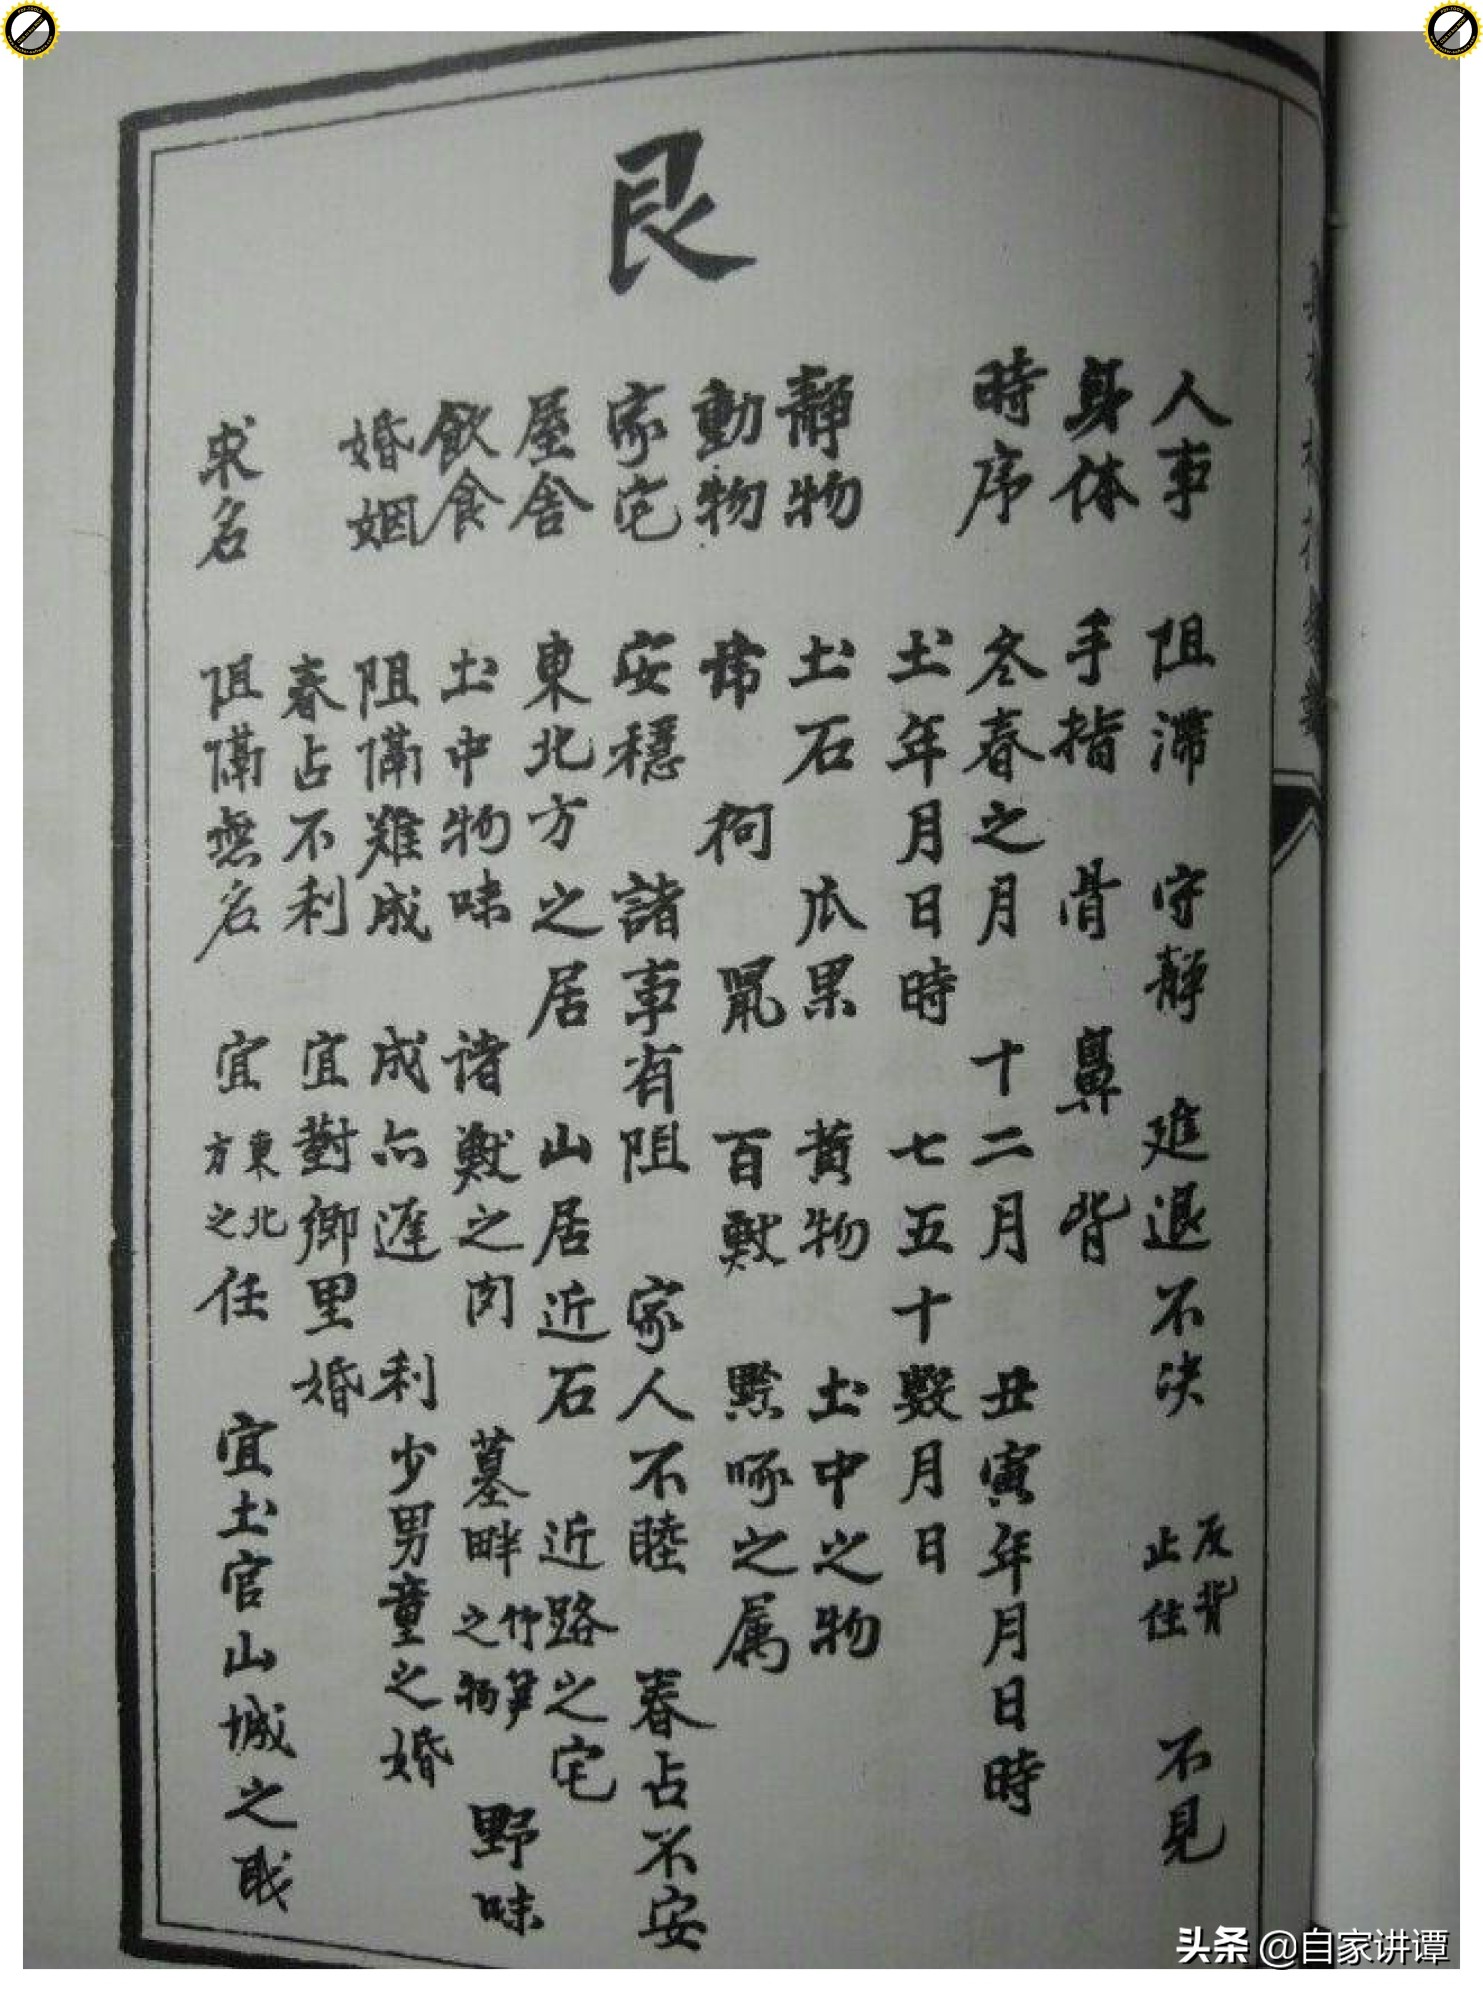 艮
人事 阻滯 守靜 進退不决 反背 止住 不見
身体 手指 骨 鼻 背
時序 冬春之月 十二月 丑寅年月日時
土年月日時 七五十数月日
靜物 土石 瓜果 黃物 土中之物
動物 百獸 黔啄之属
家宅 安穩 諸事有阻 家人不睦 春占不安
屋舎 東北方之居 山居近石 近路之宅
飲食 土中物味 诸獸之肉 墓畔竹笋之物 野味
婚姻 阻隔難成 成亦遲 利少男童之婚
春占不利 宜對鄉里婚
求名 阻隔無名 宜東北方之任 宜土官山城之職
头条 @自家讲谭